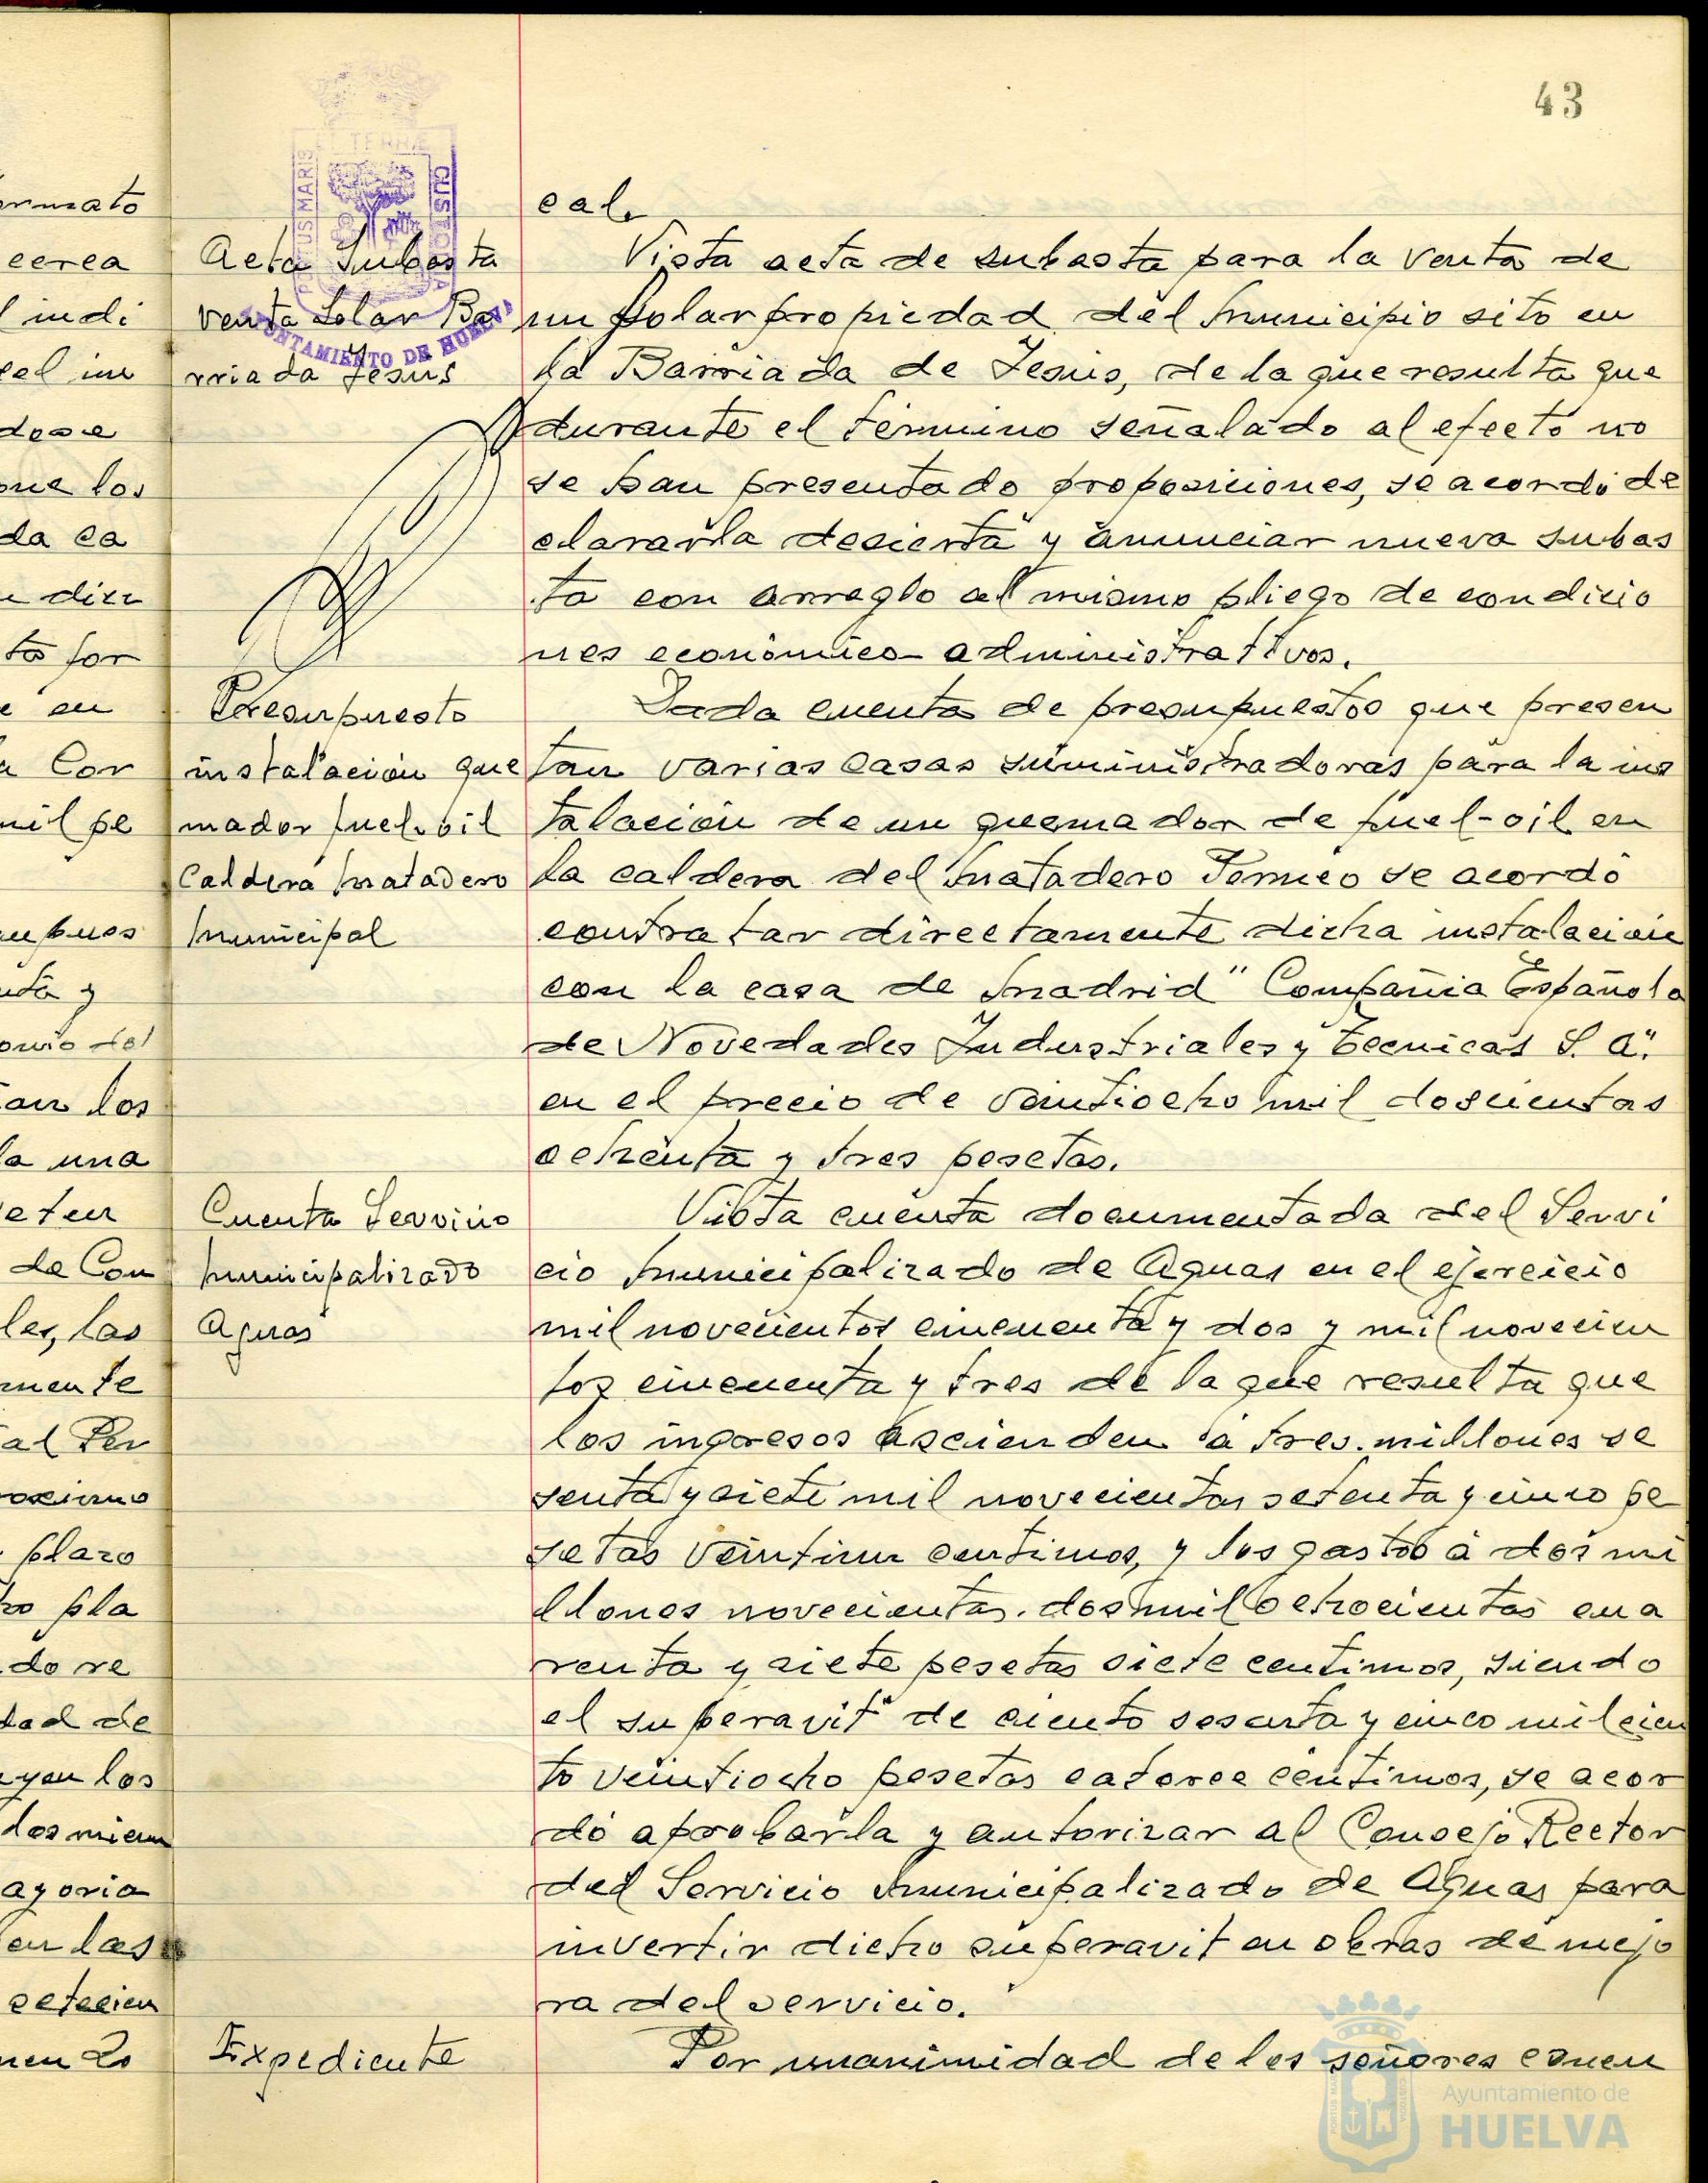 43
cal.
Acta Subasta
venta Solar Ba
rriada Jesús
Vista acta de subasta para la venta de
un solar propiedad del Municipio sito en
la Barriada de Jesús, de la que resulta que
durante el término señalado al efecto no
se han presentado proposiciones, se acordó de
clararla desierta y anunciar nueva subas
ta con arreglo al mismo pliego de condicio
nes económico-administrativos.
Presupuesto
instalación que
mador fuel-oil
Caldera Matadero
Municipal
Dada cuenta de presupuestos que presen
tan varias casas suministradoras para la ins
talación de un quemador de fuel-oil en
la caldera del Matadero se acordó
contratar directamente dicha instalación
con la casa de Madrid "Compañia Española
de Novedades Industriales y Tecnicas S. A".
en el precio de veintiocho mil doscientas
ochenta y tres pesetas.
Cuenta Servicio
Municipalizado
Aguas
Vista cuenta documentada del Servi
cio Municipalizado de Aguas en el ejercicio
mil novecientos cincuenta y dos y mil novecien
tos cincuenta y tres de la que resulta que
los ingresos ascienden a tres millones se
senta y siete mil novecientas setenta y cinco pe
setas veintiun centimos, y los gastos a dos mi
llones novecientas dos mil ochocientas cua
renta y siete pesetas siete centimos, siendo
el superavit de ciento sesenta y cinco mil cien
to veintiocho pesetas catorce céntimos, se acor
dó aprobarla y autorizar al Consejo Rector
del Servicio Municipalizado de Aguas para
invertir dicho superavit en obras de mejo
ra del servicio.
Expediente
Por unanimidad de los señores concu
PORTUS MARIS
ET TERRÆ
CUSTODIA
AYUNTAMIENTO DE HUELVA
Ayuntamiento de
HUELVA
cerca
indi
que los
da ca
ta for
en
mil pe
los
la una
de Con
les, las
mente
plazo
pla
do re
dad de
yen los
ayoria
en las
setecien